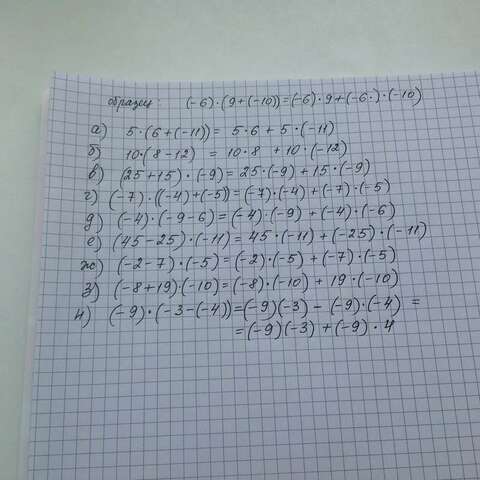 образец: (-6)·(9+(-10))=(-6)·9+(-6·)·(-10)
а) 5·(6+(-11))= 5·6 + 5·(-11)
б) 10·(8-12) = 10·8 + 10·(-12)
в) (25+15)·(-9)=25·(-9)+15·(-9)
г) (-7)·((-4)+(-5))=(-7)·(-4)+(-7)·(-5)
д) (-4)·(-9-6)=(-4)·(-9)+(-4)·(-6)
е) (45-25)·(-11)=45·(-11)+(-25)·(-11)
ж) (-2-7)·(-5)=(-2)·(-5)+(-7)·(-5)
з) (-8+19)·(-10)=(-8)·(-10)+19·(-10)
и) (-9)·(-3-(-4))=(-9)(-3)-(-9)·(-4) =
=(-9)(-3)+(-9)·4